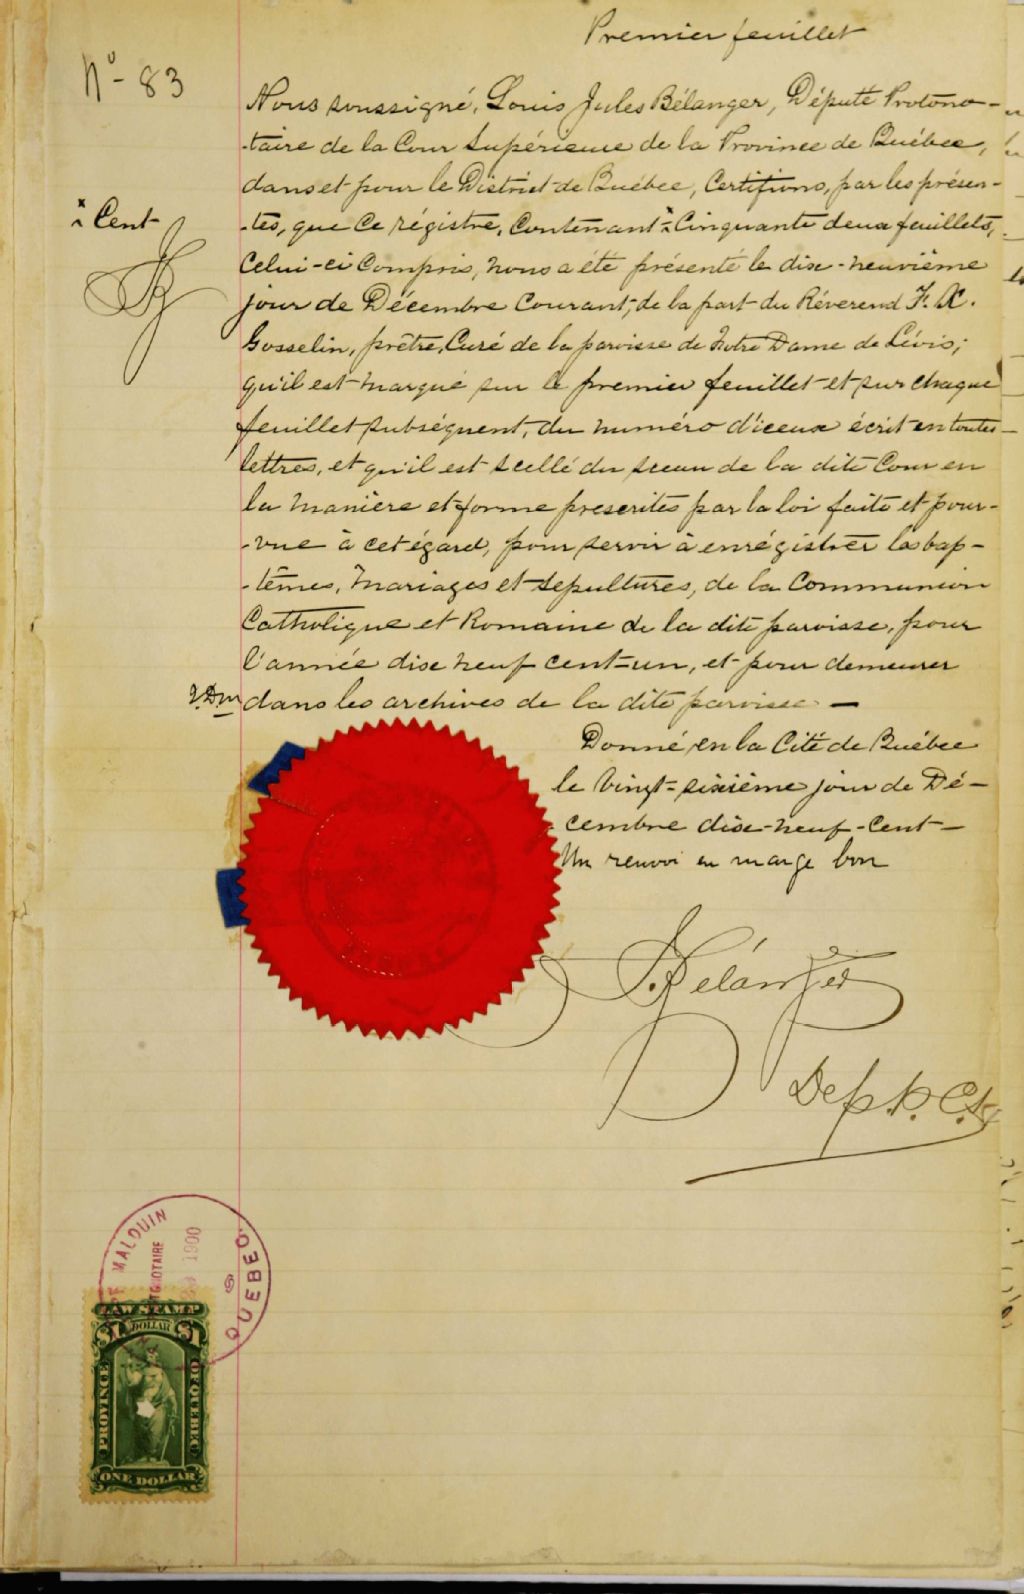 Premier feuillet
No- 83
Nous soussigné, Louis Jules Bélanger, Député Protono-
-taire de la Cour Supérieure de la Province de Québec,
dans et pour le District de Québec, Certifions, par les présen-
x Cent
-tes, que ce régistre, contenant x Cinquante deux feuillets,
Celui-ci Compris, nous a été présenté le dix-neuvième
jour de Décembre Courant, de la part du Réverend F. X.
Gosselin, prêtre, Curé de la paroisse de Notre Dame de Lévis;
qu'il est marqué sur le premier feuillet et sur chaque
feuillet subséquent, du numéro d'iceux écrit en toutes
lettres, et qu'il est scellé du sceau de la dite Cour en
la manière et forme prescrites par la loi faite et pour-
-vue à cet égard, pour servir à enrégistrer les bap-
-têmes, Mariages et Sépultures, de la Communion
Catholique et Romaine de la dite paroisse, pour
l'année dix neuf cent-un, et pour demeurer
dans les archives de la dite paroisse. —
Donné en la Cité de Québec
le vingt-sixième jour de Dé-
cembre dix-neuf-cent-
Un renvoi en marge bon
Bélanger
Dep. P. C. S.
MALOUIN
1900
QUEBEC
LAW STAMP
$1 DOLLAR $1
PROVINCE OF QUEBEC
ONE DOLLAR